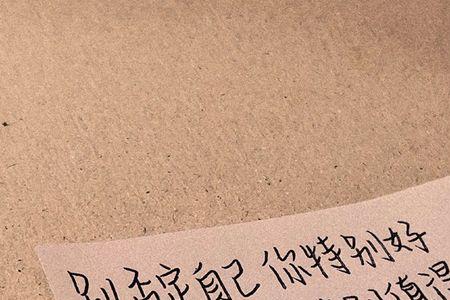 别否定自己 你特别好
别值得